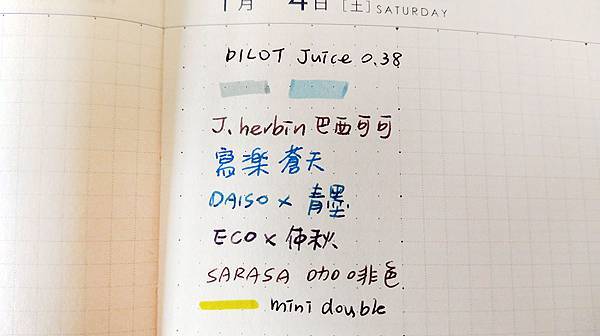 1月 4日 [土] SATURDAY
PILOT Juice 0.38
J. herbin 巴西可可
寫楽 蒼天
DAISO x 青墨
ECO x 仲秋
SARASA 咖啡色
mini double